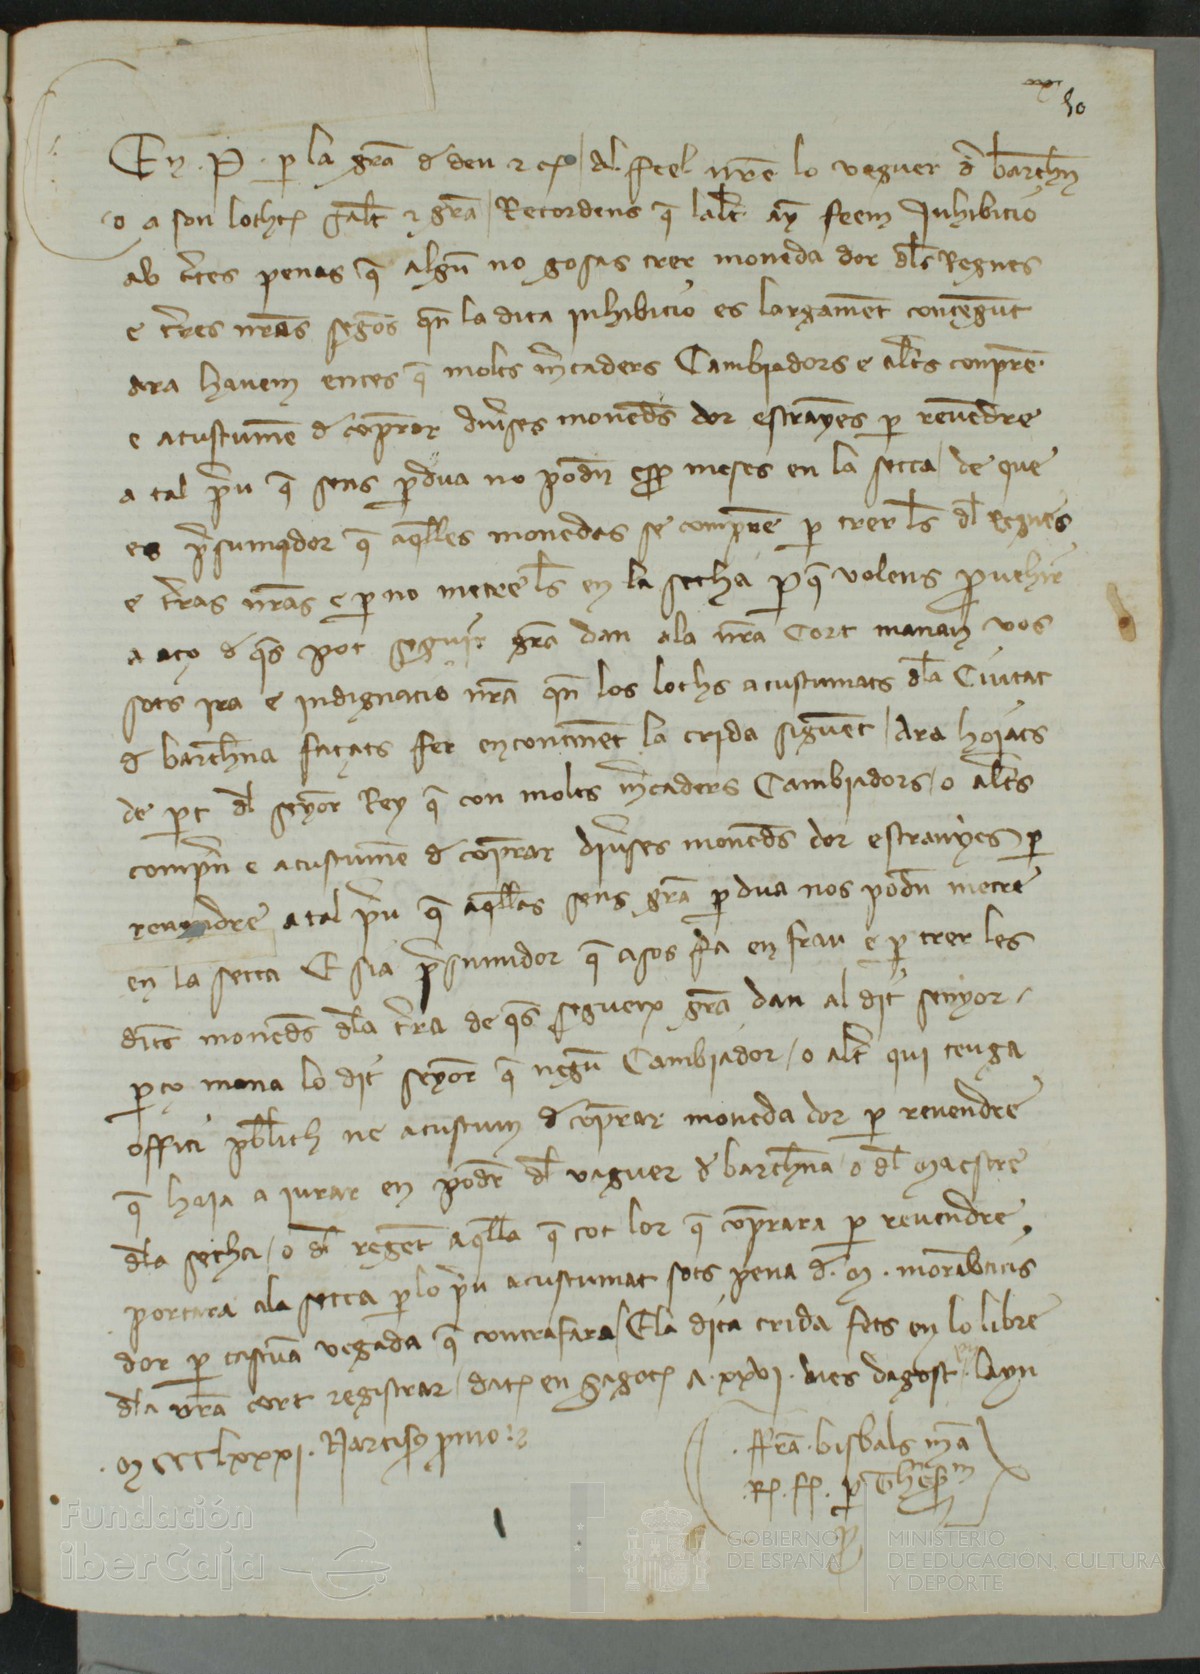 50
En .P. per la gra de deu ⁊ cȩ / Al feel nre lo veguer de barchn
o a son lochtȩ salt ⁊ gra / Recordens q laltr ay feem Inhibicio
ab certes penas q algu no gosas trer moneda dor dls Regnes
e terres nras segos qn la dita inhibicio es largament contengut
ara havem entes q molts mcaders Cambiadors e altrs conpre
e acustume de coprar diuses moneds dor estranyes p reuendre
a tal preu q sens perdua no podn esser meses en la secca / de que
es presumador q aqlles monedas se compre p trer ls dl Regnes
e terras nras e p no metre ls en la secha perq volens prouehir
a aço de qs pot seguir gra dan ala nra Cort manam vos
sots ira e indignacio nra qn los lochs acustumats dla Ciutat
de barchna façats fer encontinent la crida seguent / Ara hoiats
de part dl senyor Rey q con molts mcaders Cambiadors / o altrs
compren e acustume de coprar diuses moneds dor estranyes p
reuendre a tal preu q aqllas sens gra perdua nos podn metre
en la secca E sia presumidor q asos fa en frau e p trer les
dits moneds dla terra de qs seguex gra dan al dit senyor /
perço mana lo dit senyor q negu Cambiador / o altr qui tenga
offici publich ne acustum de coprar moneda dor p reuendre
q haia a iurar en poder dl vaguer de barchna / o dl maestre
dla secha / o dl regent aqlla q tot lor q coprara p reuendre
portara ala secca p lo preu acustumat sots pena de .M. morabatis
dor p cascua vegada q contrafara / E la dita crida fets en lo libre
dla nra cort registrar / datȩ en Saragoçȩ A .XXVI. dies dagost layn
.M CCC lxxxi. Narcisȩ pmo
.ffra. bisbals ma
.Rȩ. fȩ. p Thes